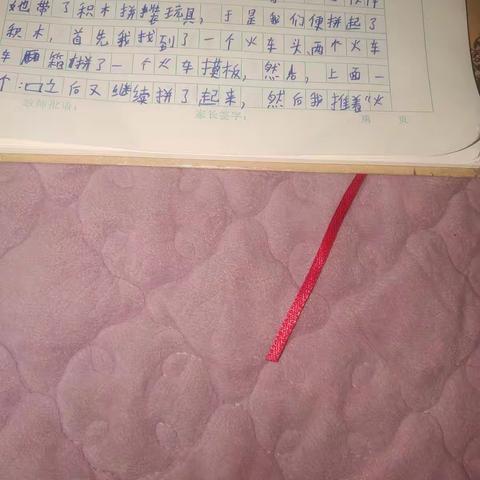 她带了积木拼装玩具,于是我们便拼起了
积木,首先我找到了一个火车头两个火车
车厢拼了一个火车摸板,然后,上面一
个:口之后又继续拼了起来,然后我推着“火
教师批语:
家长签字:
第 页